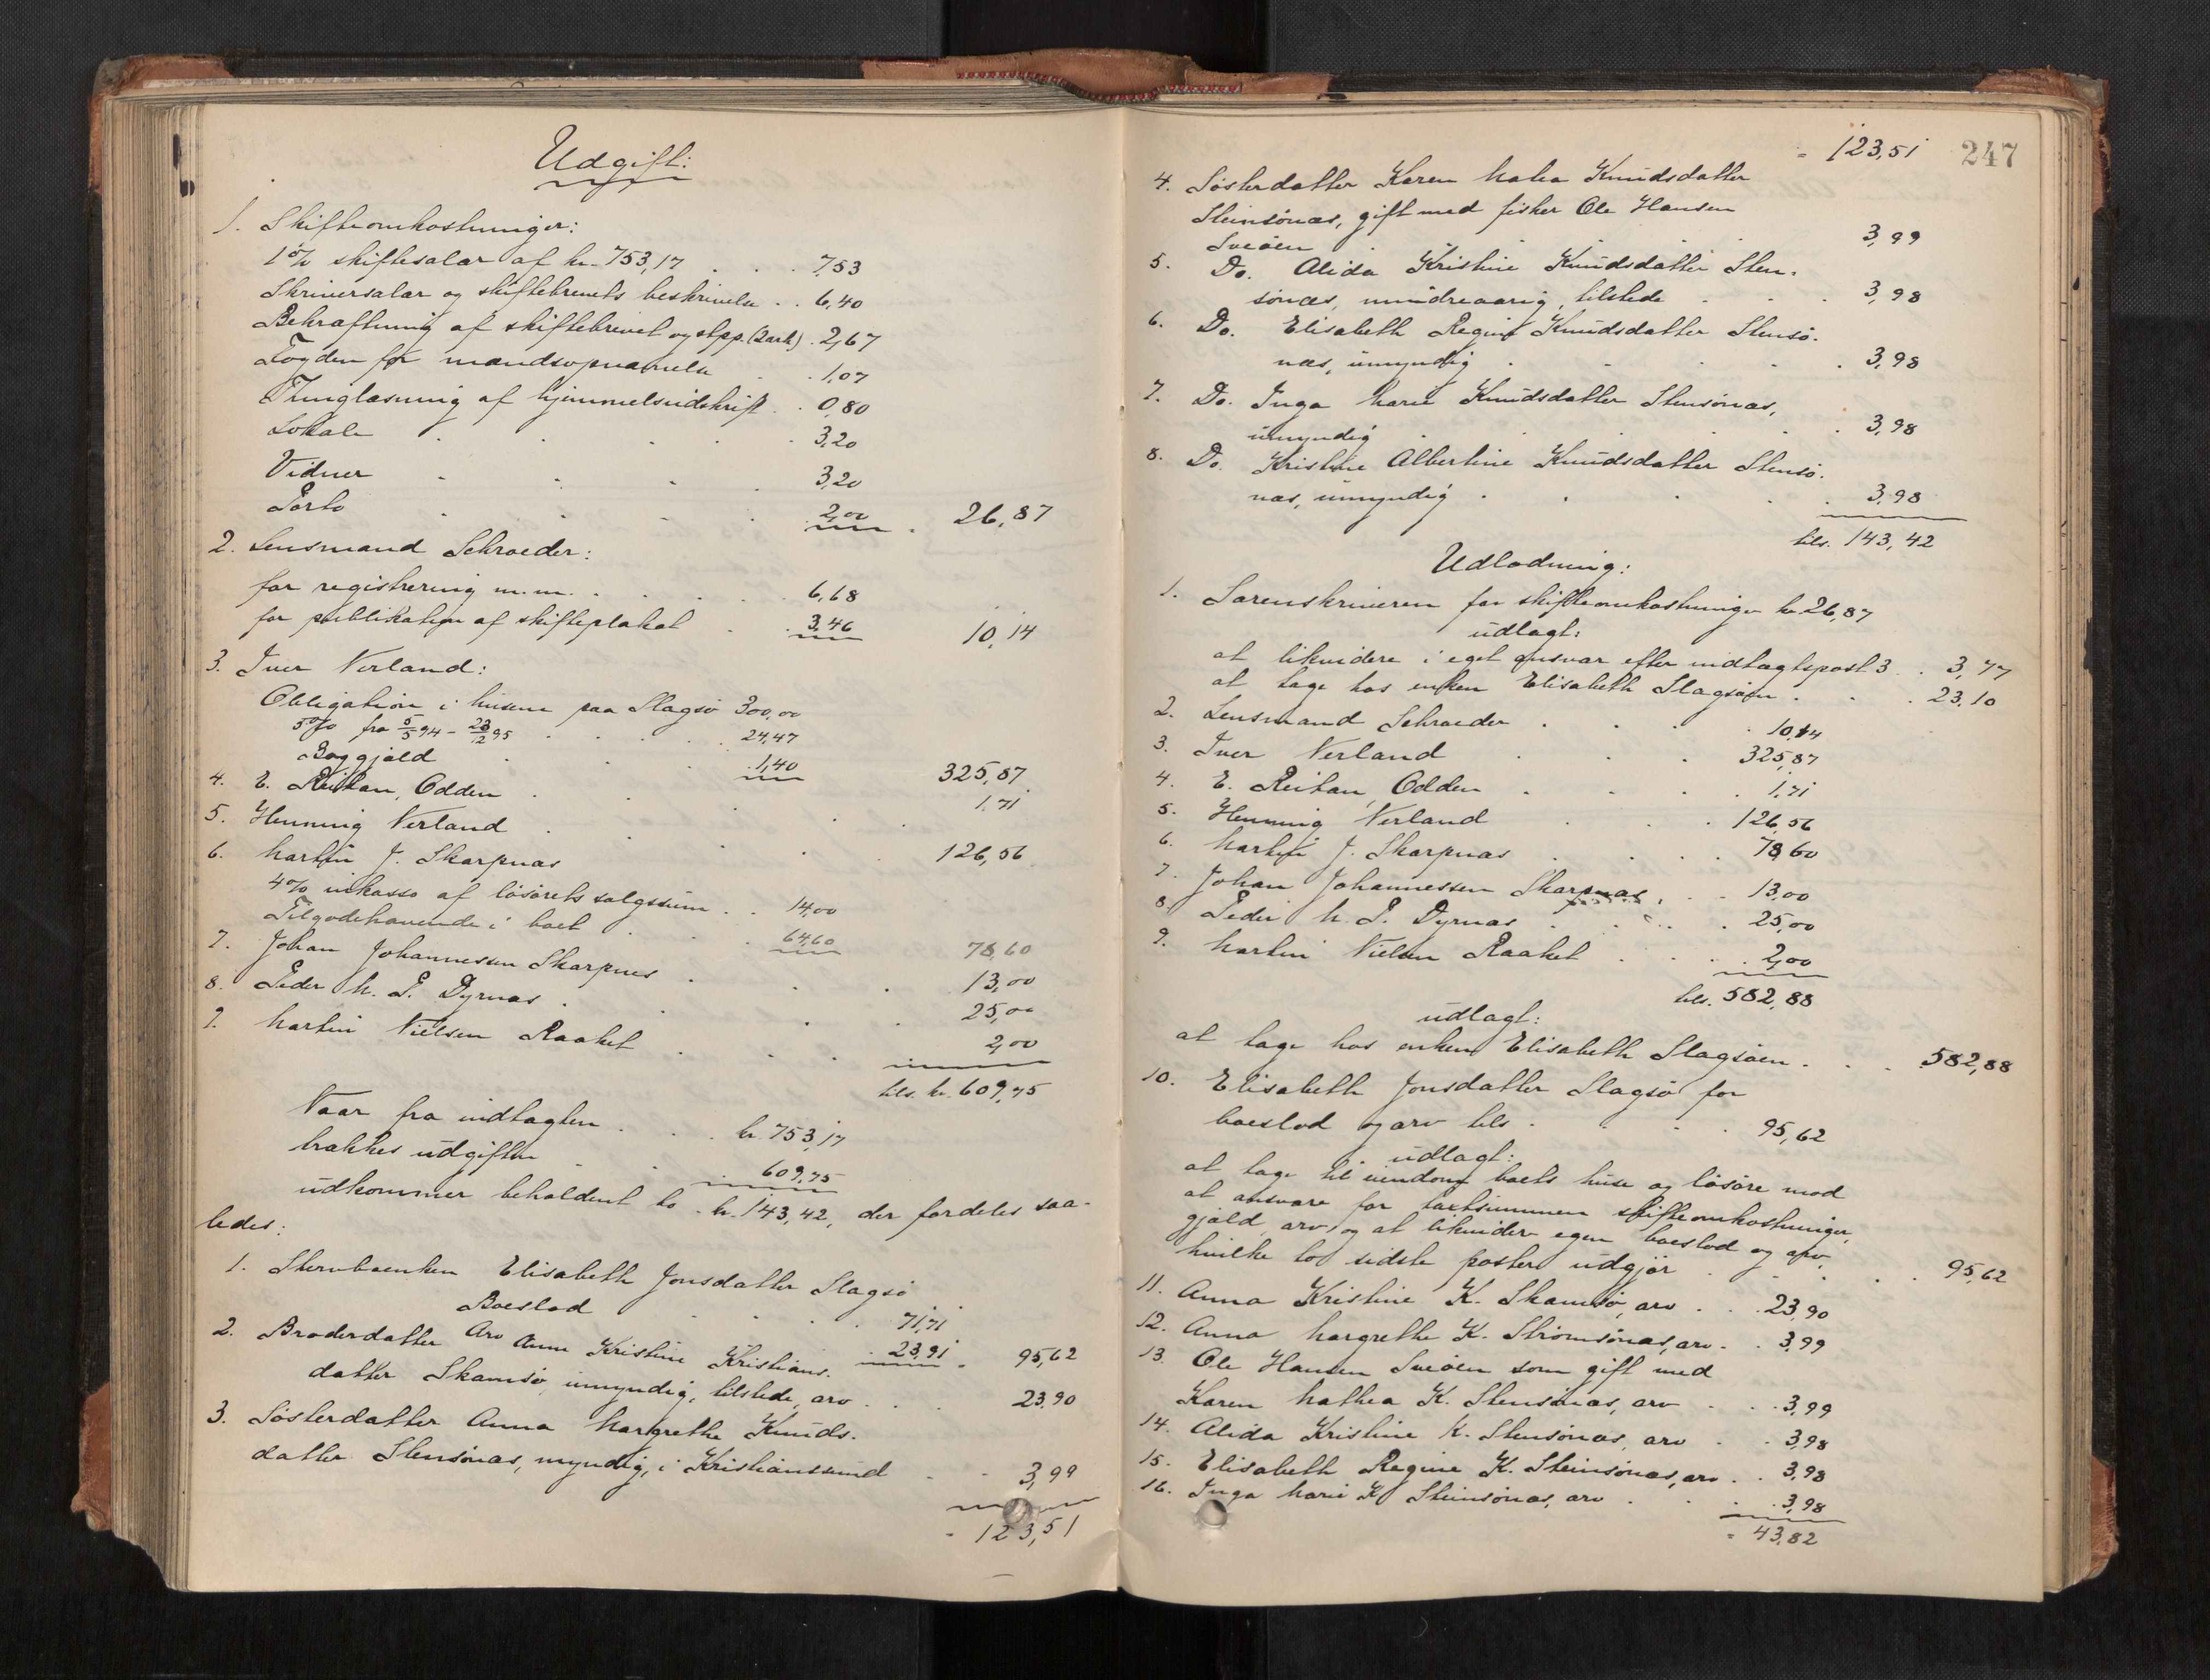 Udgift:
1. Skifteomkostninger:
1% skiftesalær af kr. 753,17 . . . 7,53
Skriversalær og skiftebrevets beskrivelse . . 6,40
Bekræftning af skiftebrevet og stpp. (2 ark) . 2,67
Fogden for mandsopnævnelse . . 1,07
Thinglæsning af hjemmelsudskrift . . 0,80
Lokale . . . . 3,20
Vidner . . . . 3,20
Porto . . . . 2,00 . 26,87
2. Lensmand Schrøeder:
for registrering m.m. . . . . 6,68
for publikation af skifteplakat . . 3,46 10,14
3. Iver Verland:
Obligation i husene paa Slagsø 300,00
5% fra 5/5 94 - 23/12 95 . . . . 24,47
Boggjæld . . . . 1,40 325,87
4. E. Reitan, Odden . . . . 1,71
5. Henning Verland . . . . 126,56
6. Martin J. Skarpnæs
4% inkasso af løsørets salgssum . . 14,00
Tilgodehavende i boet . . . 64,60 78,60
7. Johan Johannessen Skarpnes . . . 13,00
8. Peder M. P. Dyrnæs . . . . 25,00
9. Martin Nielsen Raaket . . . 2,00
tils. kr. 609,75
Naar fra indtægten . . . kr. 753,17
trækkes udgiften . . . 609,75
udkommer beholdent bo . kr. 143,42, der fordeles saa-
ledes:
1. Stervboenken Elisabeth Jonsdatter Slagsø
Boeslod . . . . 71,71
Arv . . 23,91 . 95,62
2. Broderdatter Anne Kristine Kristians.
datter Skamsø, umyndig, tilstede, arv . . . 23,90
3. Søsterdatter Anna Margrethe Knuds.
datter Stensønæs, myndig, i Kristianssund . . 3,99
- 123,51
247
- 123,51
4. Søsterdatter Karen Mahea Knudsdatter
Steinsønæs, gift med fisker Ole Hansen
Sveøen . . . . 3,99
5. Do. Alida Kristine Knudsdatter Sten-
sønæs, mindreaarig, tilstede . . . 3,98
6. Do. Elisabeth Regine Knudsdatter Stensø-
næs, umyndig . . . . 3,98
7. Do. Inga Marie Knudsdatter Stensønæs,
umyndig . . . . 3,98
8. Do. Kristine Albertine Knudsdatter Stensø-
næs, umyndig . . . . 3,98
tils. 143,42
Udlodning:
1. Sorenskriveren for skifteomkostninger kr. 26,87
udlagt:
at likvidere i eget ansvar efter indtægtspost 3 . 3,77
at tage hos enken Elisabeth Slagsøen . . . 23,10
2. Lensmand Schroeder . . . . 10,14
3. Iver Verland . . . 325,87
4. E. Reitan, Odden . . . . 1,71
5. Henning Verland . . . 126,56
6. Martin J. Skarpnæs . . . . 78,60
7. Johan Johannessen Skarpnæs, . . 13,00
8. Peder M. P. Dyrnæs . . . . 25,00
9. Martin Nielsen Raaket . . . . 2,00
tils. 582,88
udlagt:
at tage hos enken Elisabeth Slagsøen . . . 582,88
10. Elisabeth Jonsdatter Slagsø for
boeslod og arv tils . . . . 95,62
udlagt:
at tage til eiendom boets huse og løsøre mod
at ansvare for taxtsummen skifteomkostninger,
gjæld, arv, og at likvidere egen boeslod og arv,
hvilke to sidste poster udgjør . . . . 95,62
11. Anna Kristine K. Skamsø, arv . . . 23,90
12. Anna Margrethe K. Strømsønæs, arv . . 3,99
13. Ole Hansen Sveøen som gift med
Karen Mathea K. Stensønæs, arv . . . 3,99
14. Alida Kristine K. Stensønæs, arv . . 3,98
15. Elisabeth Regine K. Steinsønæs, arv . . 3,98
16. Inga Marie K. Steinsønæs, arv . . . . 3,98
- 43,82